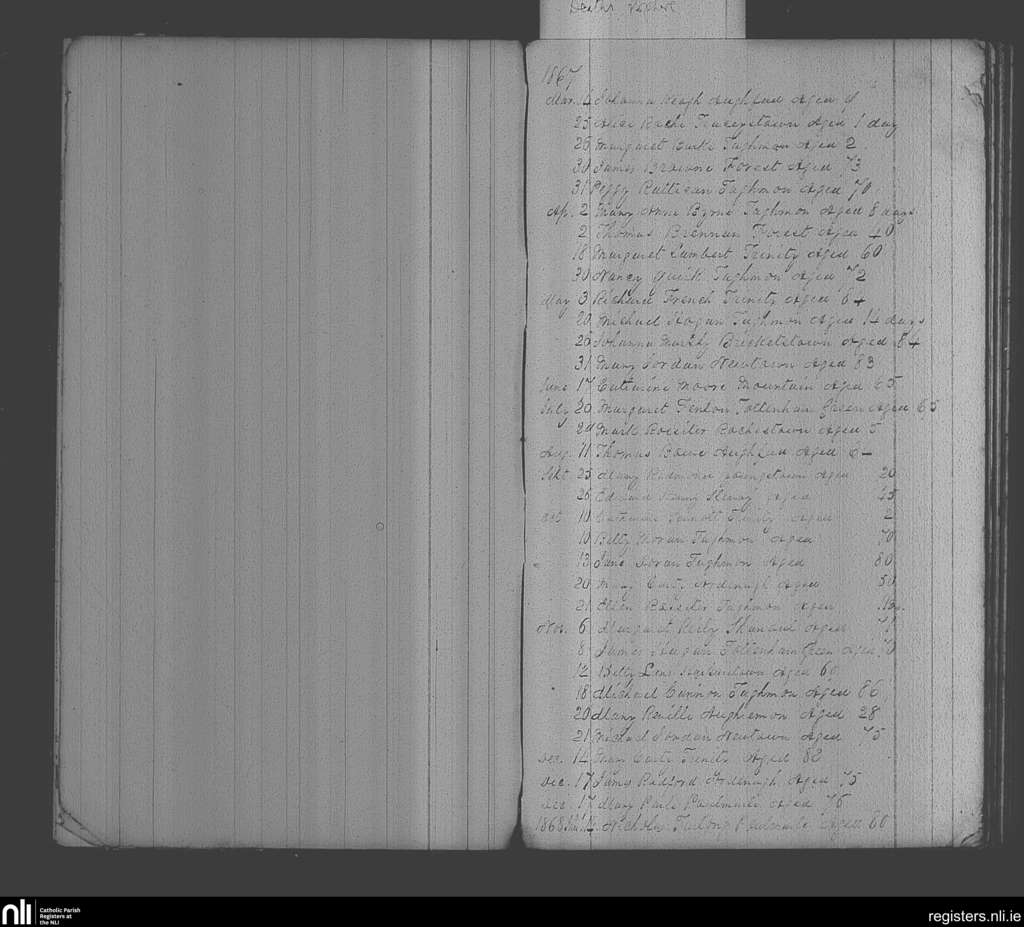 Deaths
1867
Mar. Johanna Keogh Aged
25 Rache Aged 1 day
26 Margaret Burke Taghmon Aged 2
30 James Browne Forest Aged 73
31 Peggy Taghmon Aged 70
Ap. 2 Mary Anne Byrne Taghmon Aged 8 days
2 Thomas Brennan Forest Aged 40
18 Margaret Lambert Trinity Aged 60
30 Nancy Quirk Taghmon Aged 72
May 3 Richard French Trinity Aged 64
20 Michael Hogan Taghmon Aged 14 days
26 Johanna Murphy Aged 84
31 Mary Jordan Newtown Aged 83
June 17 Catherine Moore Mountain Aged 65
July 20 Margaret Fenlon Tottenham Green Aged 65
24 Mark Rossiter Rochestown Aged 5
Aug. 11 Thomas Aged
Sept 25 Mary Redmond Aged 20
26 Edward Aged 45
Oct 10 Catherine Trinity Aged 2
10 Betty Moran Taghmon Aged 70
13 Jane Doran Taghmon Aged 80
20 Mary Ardenagh Aged 50
21 Ellen Rossiter Taghmon Aged
Nov. 6 Margaret Reily Aged
8 James Tottenham Green Aged 70
12 Betty Aged
18 Michael Cannon Taghmon Aged 86
20 Mary Reville Aged 28
21 Jordan Newtown Aged 75
Dec. 14 Mary Trinity Aged 82
Dec. 17 James Radford Ardenagh Aged 75
Dec. 17 Mary Aged 76
1868 Furlong Aged
nli
Catholic Parish
Registers at
the NLI
registers.nli.ie